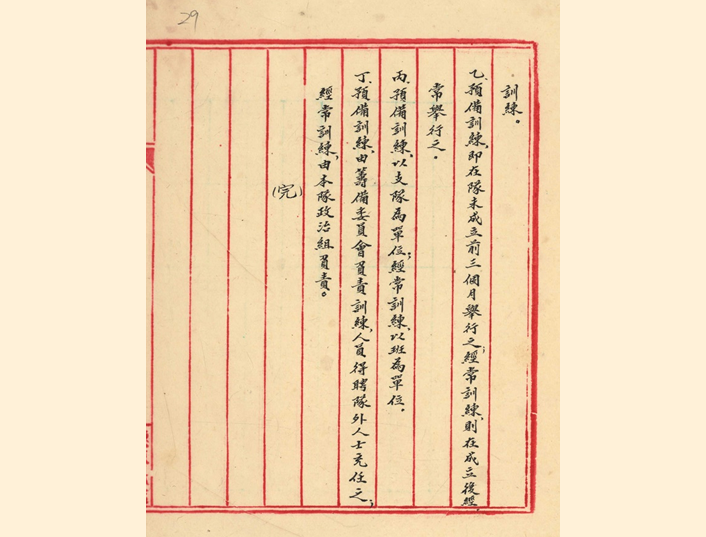 29
訓練。
乙、預備訓練，即在隊未成立前三個月舉行之；經常訓練，則在成立後經
常舉行之。
丙、預備訓練，以支隊為單位；經常訓練，以班為單位。
丁、預備訓練，由籌備委員會負責訓練，人員得聘隊外人士充任之；
經常訓練，由本隊政治組負責。
（完）